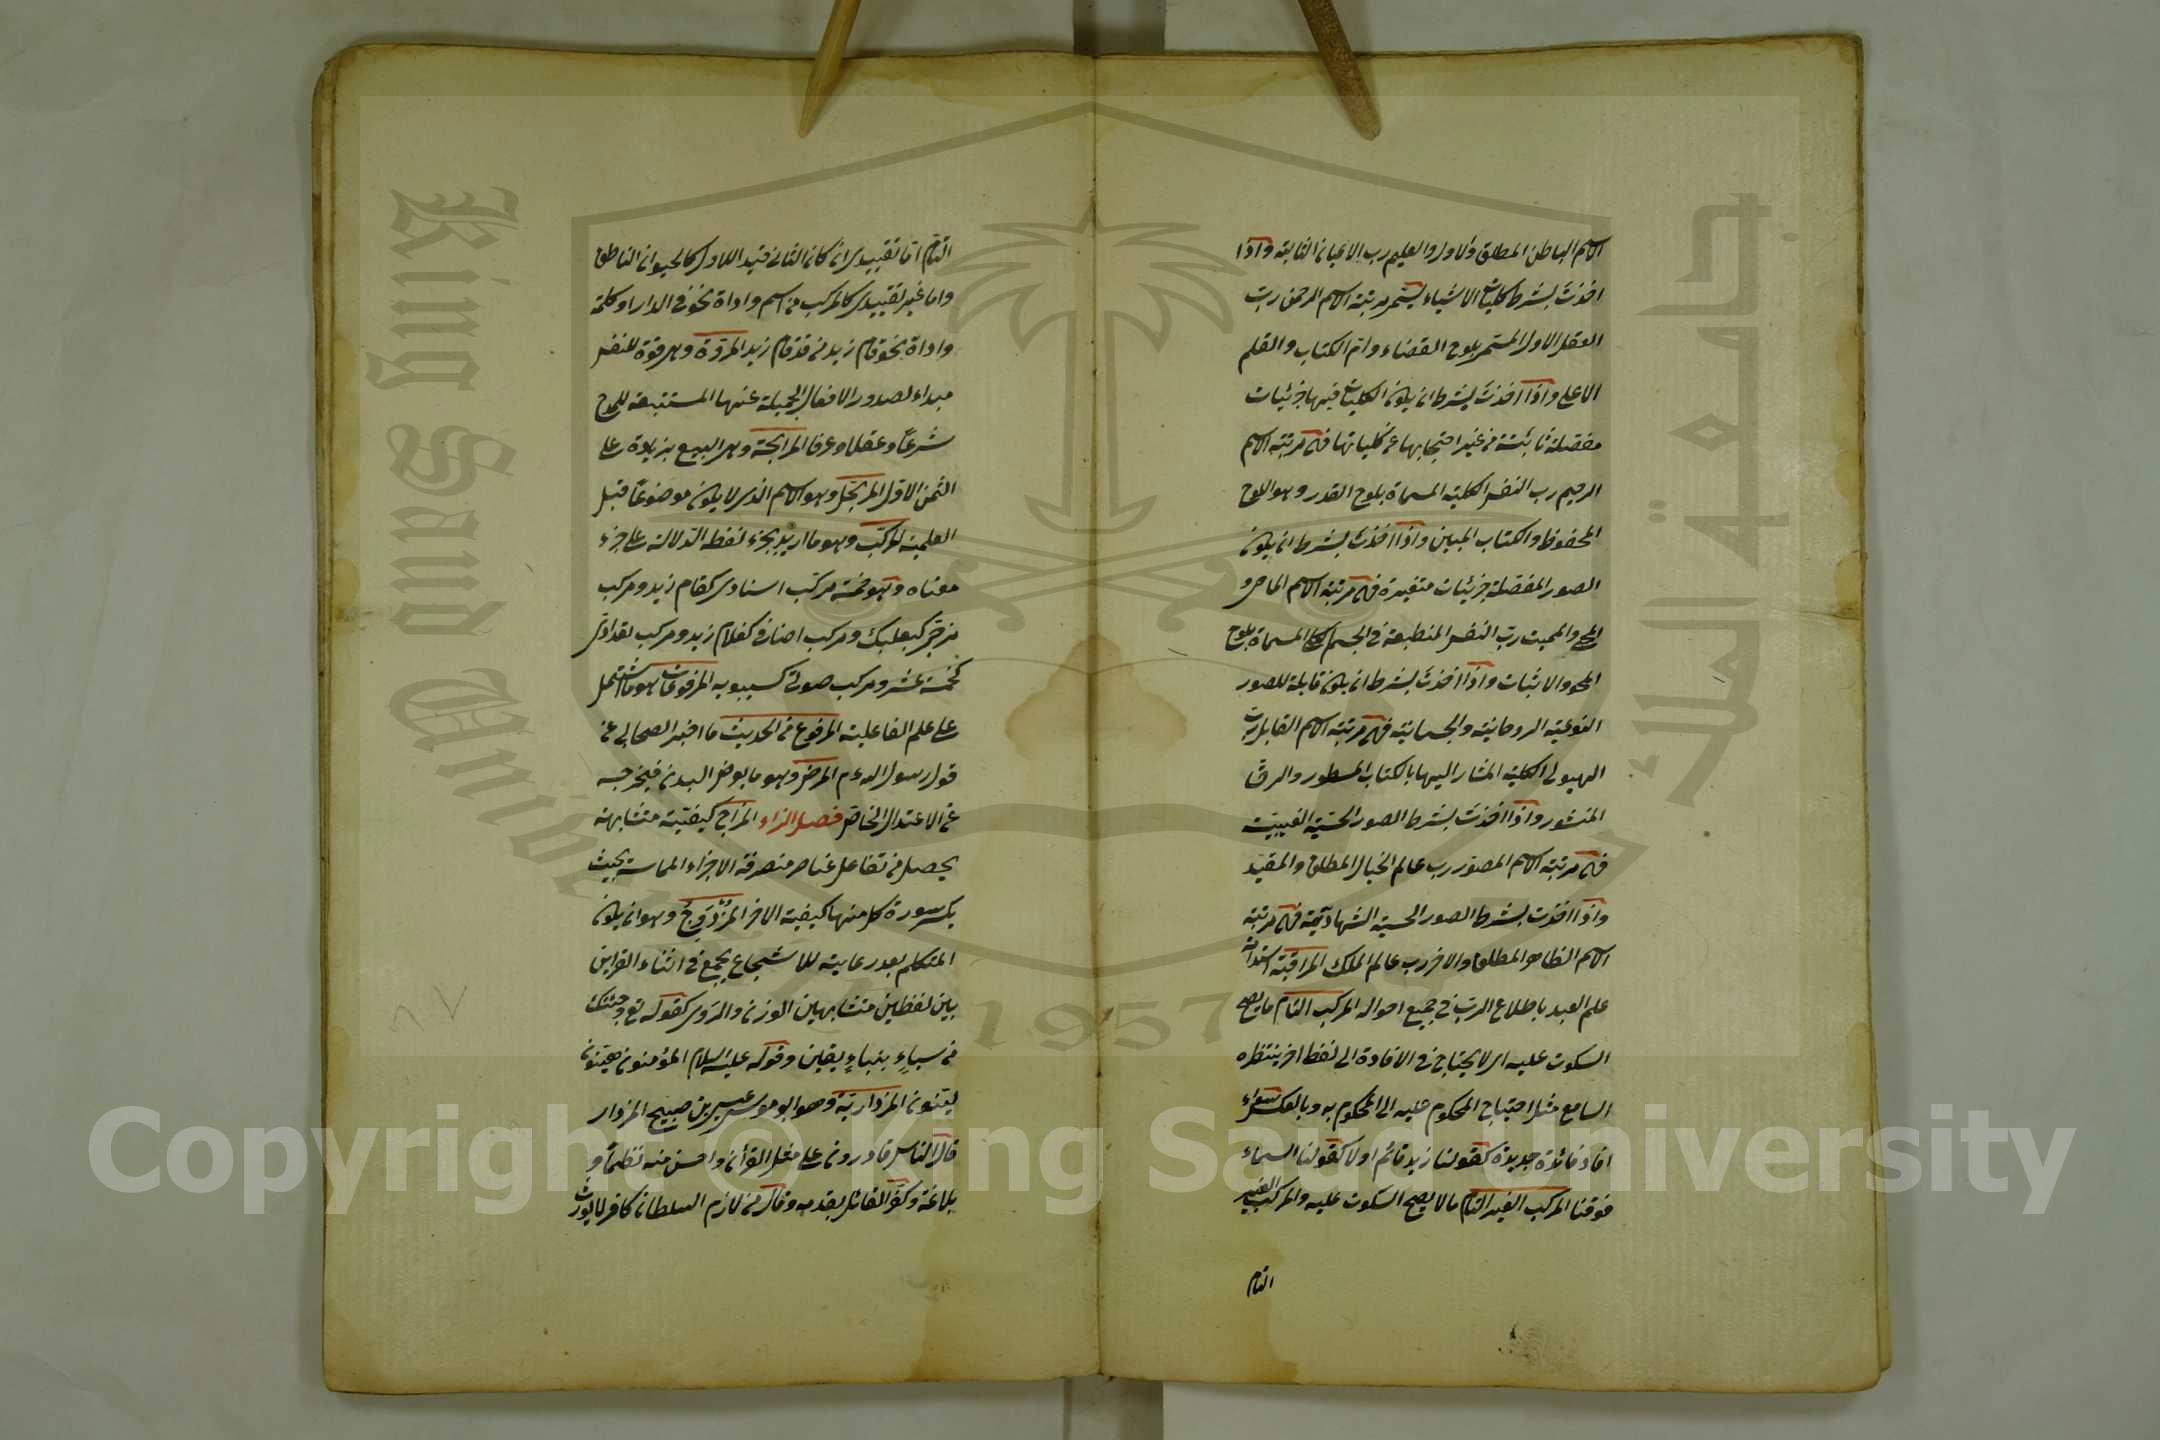 الاسم الباطن المطلق والاول والعليم رب الاعيان الثابتة واذا
اخذت بشرط كليات الاشياء يسمى مرتبة الاسم الرحمن رب
العقل الاول المسمى بلوح القضاء وام الكتاب والقلم
الاعلى واذا اخذت بشرط ان يكون الكليات فيها جزئيات
مفصلة ثابتة من غير احتجابها عن كلياتها فهي مرتبة الاسم
الرحيم رب النفس الكلية المسماة بلوح القدر وهو اللوح
المحفوظ والكتاب المبين واذا اخذت بشرط ان يكون
الصور المفصلة جزئيات متغيرة فهي مرتبة الاسم الماحي و
المحي والمميت رب النفس المنطبعة في الجسم الكلي المسماة بلوح
المحو والاثبات واذا اخذت بشرط ان يكون قابلة للصور
النوعية الروحانية والجسمانية فهي مرتبة الاسم القابل رب
الهيولى الكلية المشار اليها بالكتاب المسطور والرق
المنشور واذا اخذت بشرط الصور الحسية الغيبية
فهي مرتبة الاسم المصور رب عالم الخيال المطلق والمقيد
واذا اخذت بشرط الصور الحسية الشهادتية فهي مرتبة
الاسم الظاهر المطلق والاخر رب عالم الملك المراقبة استدامة
علم العبد باطلاع الرب في جميع احواله المركب التام ما يصح
السكوت عليه اي لا يحتاج في الافادة الى لفظ اخر ينتظره
السامع مثل احتياج المحكوم عليه الى المحكوم به وبالعكس سواء
افاد فائدة جديدة كقولنا زيد قائم اولا كقولنا السماء
فوقنا المركب الغير التام ما لا يصح السكوت عليه والمركب الغير
التام
التام اما تقييدي ان كان الثاني قيد اللاول كالحيوان الناطق
واما غير تقييدي كالمركب من اسم واداة نحو في الدار او كلمة
واداة نحو قام زيد من قد قام زيد المروة وهي قوة للنفس
مبداء لصدور الافعال الجميلة عنها المستتبعة للمدح
شرعا وعقلا وعرفا المرابحة وهي البيع بزيادة على
الثمن الاول المرتجل وهو الاسم الذي لا يكون موضوعا قبل
العلمية المركب وهو ما اريد بجزء لفظه الدلالة على جزء
معناه وهو خمسة مركب اسنادي كقام زيد ومركب
مزجي كبعلبك ومركب اضافي كغلام زيد ومركب تعدادي
كخمسة عشر ومركب صوتي كسيبويه المرفوعات هو ما اشتمل
على علم الفاعلية المرفوع من الحديث ما اخبر الصحابي عن
قول رسول الله ءم المرض وهو ما يعرض البدن فيخرجه
عن الاعتدال الخاص فصل الزاء المزاج كيفية متشابهة
يحصل من تفاعل عناصر منصرفة الاجزاء المماسة بحيث
يكسر سورة كل منها كيفية الاخر المزدوج وهو ان يكون
المتكلم بعد رعايته للاسجاع يجمع في اثناء القراين
بين لفظين متشابهين الوزن والروي كقوله تع وجئتك
من سباء بنباء يقين وقوله عليه السلام المؤمنون هينون
لينون المزدارية وهو ابو موسى عيسى بن صبيح المزدار
قال الناس قادرون على مثل القرأن واحسن منه نظما و
بلاغة وكفر القائل بقدمه وقال من لازم السلطان كافر لا يورث
٢٢
جامعة الملك سعود
King Saud University
1957
Copyright © King Saud University